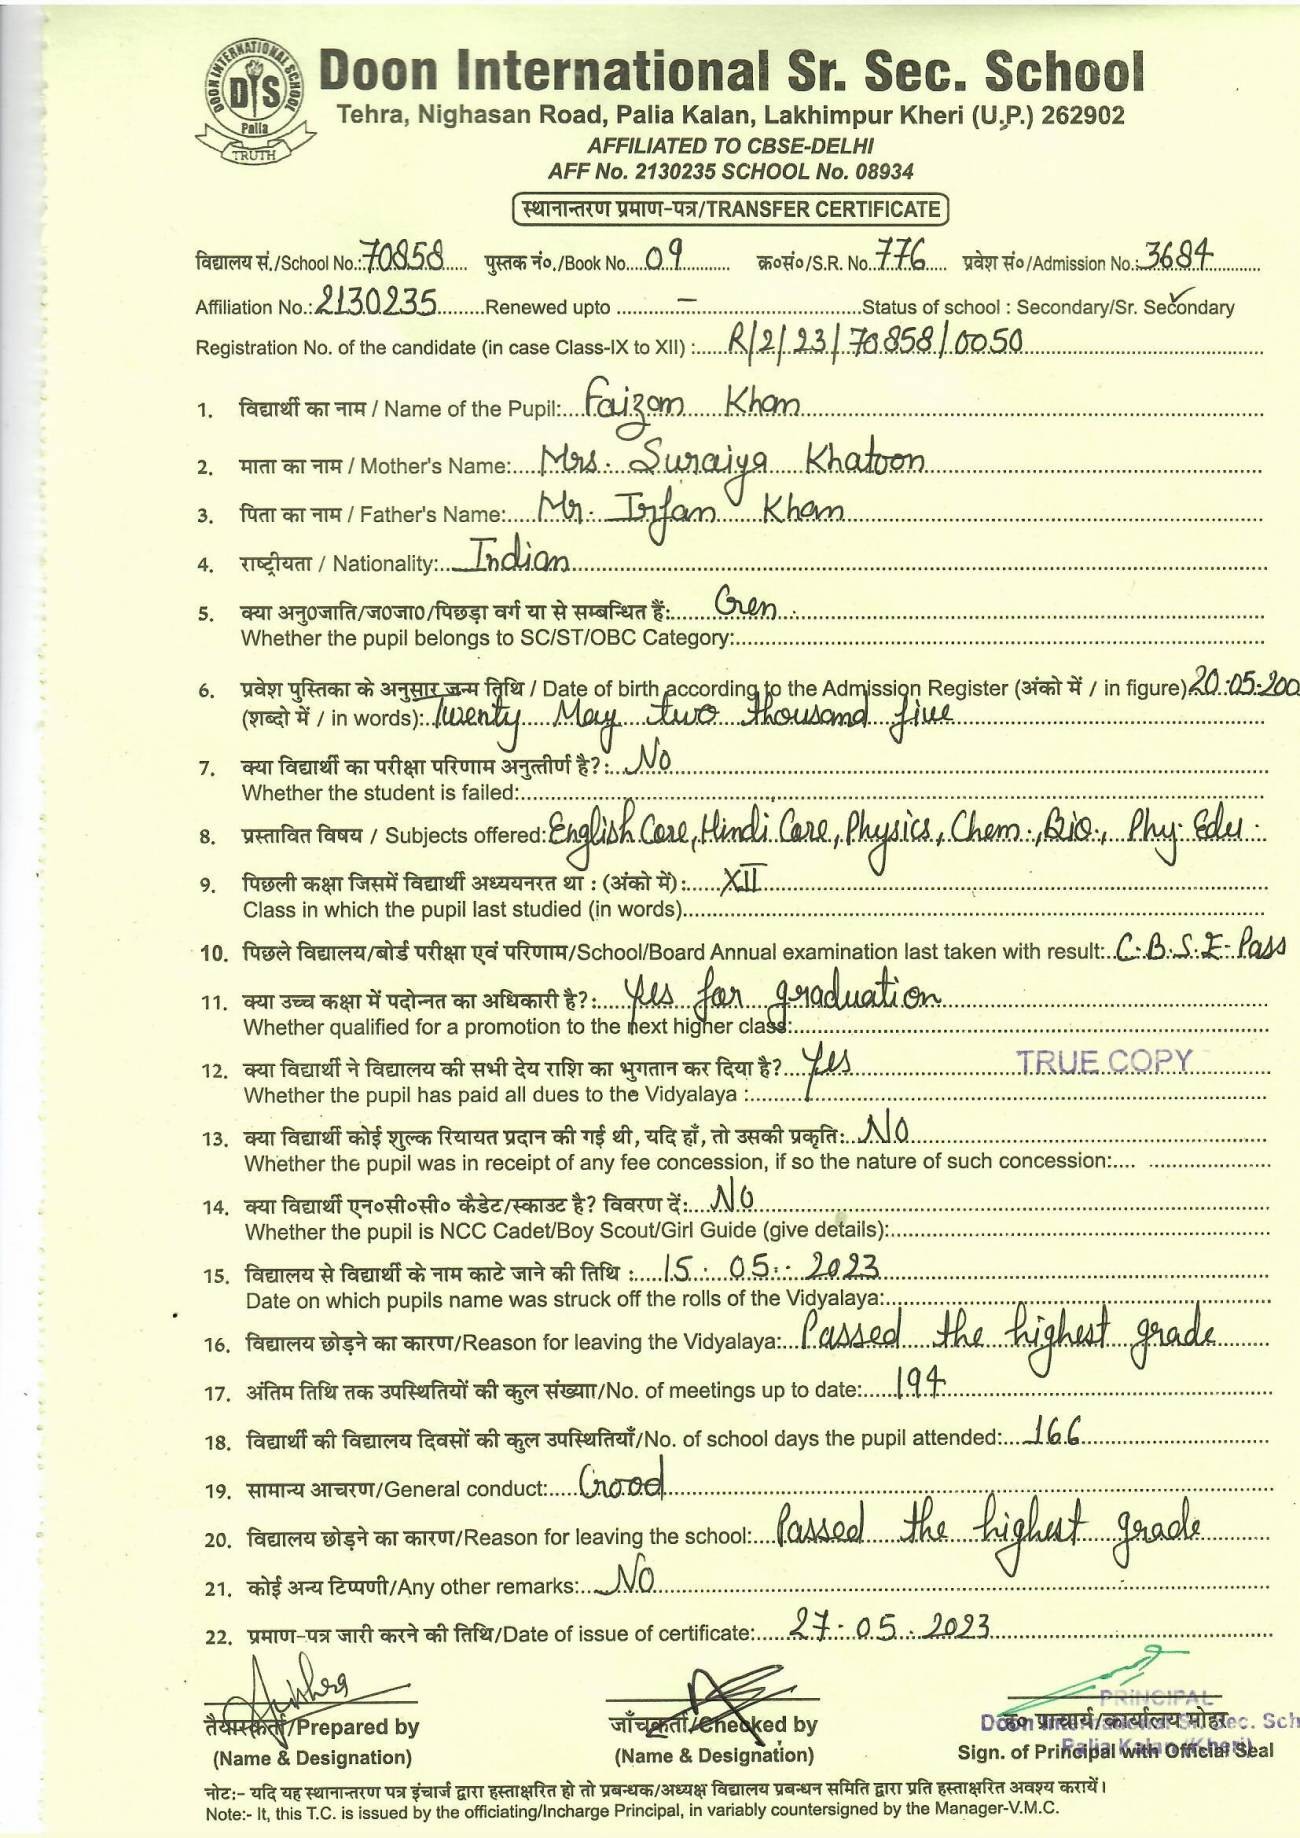 DOON INTERNATIONAL SCHOOL
DIS
Palia
TRUTH
Doon International Sr. Sec. School
Tehra, Nighasan Road, Palia Kalan, Lakhimpur Kheri (U.P.) 262902
AFFILIATED TO CBSE-DELHI
AFF No. 2130235 SCHOOL No. 08934
स्थानान्तरण प्रमाण-पत्र/TRANSFER CERTIFICATE
विद्यालय सं./School No.: 70858 पुस्तक नं०./Book No. 09 क्र०सं०/S.R. No. 776 प्रवेश सं०/Admission No.: 3684
Affiliation No.: 2130235 Renewed upto - Status of school : Secondary/Sr. Secondary
Registration No. of the candidate (in case Class-IX to XII) : R/2/23/70858/0050
1. विद्यार्थी का नाम / Name of the Pupil: Faizan Khan
2. माता का नाम / Mother's Name: Mrs. Suraiya Khatoon
3. पिता का नाम / Father's Name: Mr. Irfan Khan
4. राष्ट्रीयता / Nationality: Indian
5. क्या अनु०जाति/ज०जा०/पिछड़ा वर्ग या से सम्बन्धित हैं: Gen.
Whether the pupil belongs to SC/ST/OBC Category:
6. प्रवेश पुस्तिका के अनुसार जन्म तिथि / Date of birth according to the Admission Register (अंको में / in figure) 20.05.200
(शब्दो में / in words): Twenty May two thousand five
7. क्या विद्यार्थी का परीक्षा परिणाम अनुत्तीर्ण है?: No
Whether the student is failed:
8. प्रस्तावित विषय / Subjects offered: English Core, Hindi Core, Physics, Chem., Bio., Phy. Edu.
9. पिछली कक्षा जिसमें विद्यार्थी अध्ययनरत था : (अंको में): XII
Class in which the pupil last studied (in words)
10. पिछले विद्यालय/बोर्ड परीक्षा एवं परिणाम/School/Board Annual examination last taken with result: C.B.S.E-Pass
11. क्या उच्च कक्षा में पदोन्नत का अधिकारी है?: Yes for graduation
Whether qualified for a promotion to the next higher class:
12. क्या विद्यार्थी ने विद्यालय की सभी देय राशि का भुगतान कर दिया है? Yes TRUE COPY
Whether the pupil has paid all dues to the Vidyalaya :
13. क्या विद्यार्थी कोई शुल्क रियायत प्रदान की गई थी, यदि हाँ, तो उसकी प्रकृति: No
Whether the pupil was in receipt of any fee concession, if so the nature of such concession:
14. क्या विद्यार्थी एन०सी०सी० कैडेट/स्काउट है? विवरण दें: No
Whether the pupil is NCC Cadet/Boy Scout/Girl Guide (give details):
15. विद्यालय से विद्यार्थी के नाम काटे जाने की तिथि : 15.05.2023
Date on which pupils name was struck off the rolls of the Vidyalaya:
16. विद्यालय छोड़ने का कारण/Reason for leaving the Vidyalaya: Passed the highest grade
17. अंतिम तिथि तक उपस्थितियों की कुल संख्या/No. of meetings up to date: 194
18. विद्यार्थी की विद्यालय दिवसों की कुल उपस्थितियाँ/No. of school days the pupil attended: 166
19. सामान्य आचरण/General conduct: Good
20. विद्यालय छोड़ने का कारण/Reason for leaving the school: Passed the highest grade
21. कोई अन्य टिप्पणी/Any other remarks: No
22. प्रमाण-पत्र जारी करने की तिथि/Date of issue of certificate: 27.05.2023
PRINCIPAL
तैयारकर्ता/Prepared by जाँचकर्ता/Checked by ह० प्राचार्य/कार्यालय मोहर
(Name & Designation) (Name & Designation) Sign. of Principal with Official Seal
Palia Kalan (Kheri)
नोट:- यदि यह स्थानान्तरण पत्र इंचार्ज द्वारा हस्ताक्षरित हो तो प्रबन्धक/अध्यक्ष विद्यालय प्रबन्धन समिति द्वारा प्रति हस्ताक्षरित अवश्य करायें।
Note:- It, this T.C. is issued by the officiating/Incharge Principal, in variably countersigned by the Manager-V.M.C.